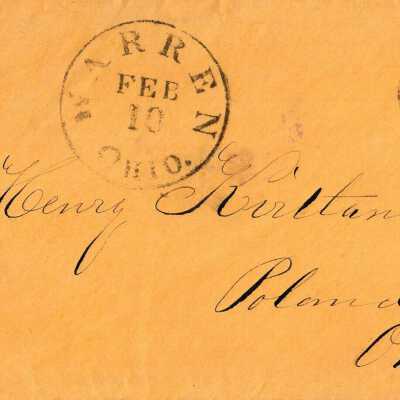 WARREN
FEB
10
OHIO.
Henry Kirtlan
Poland
O